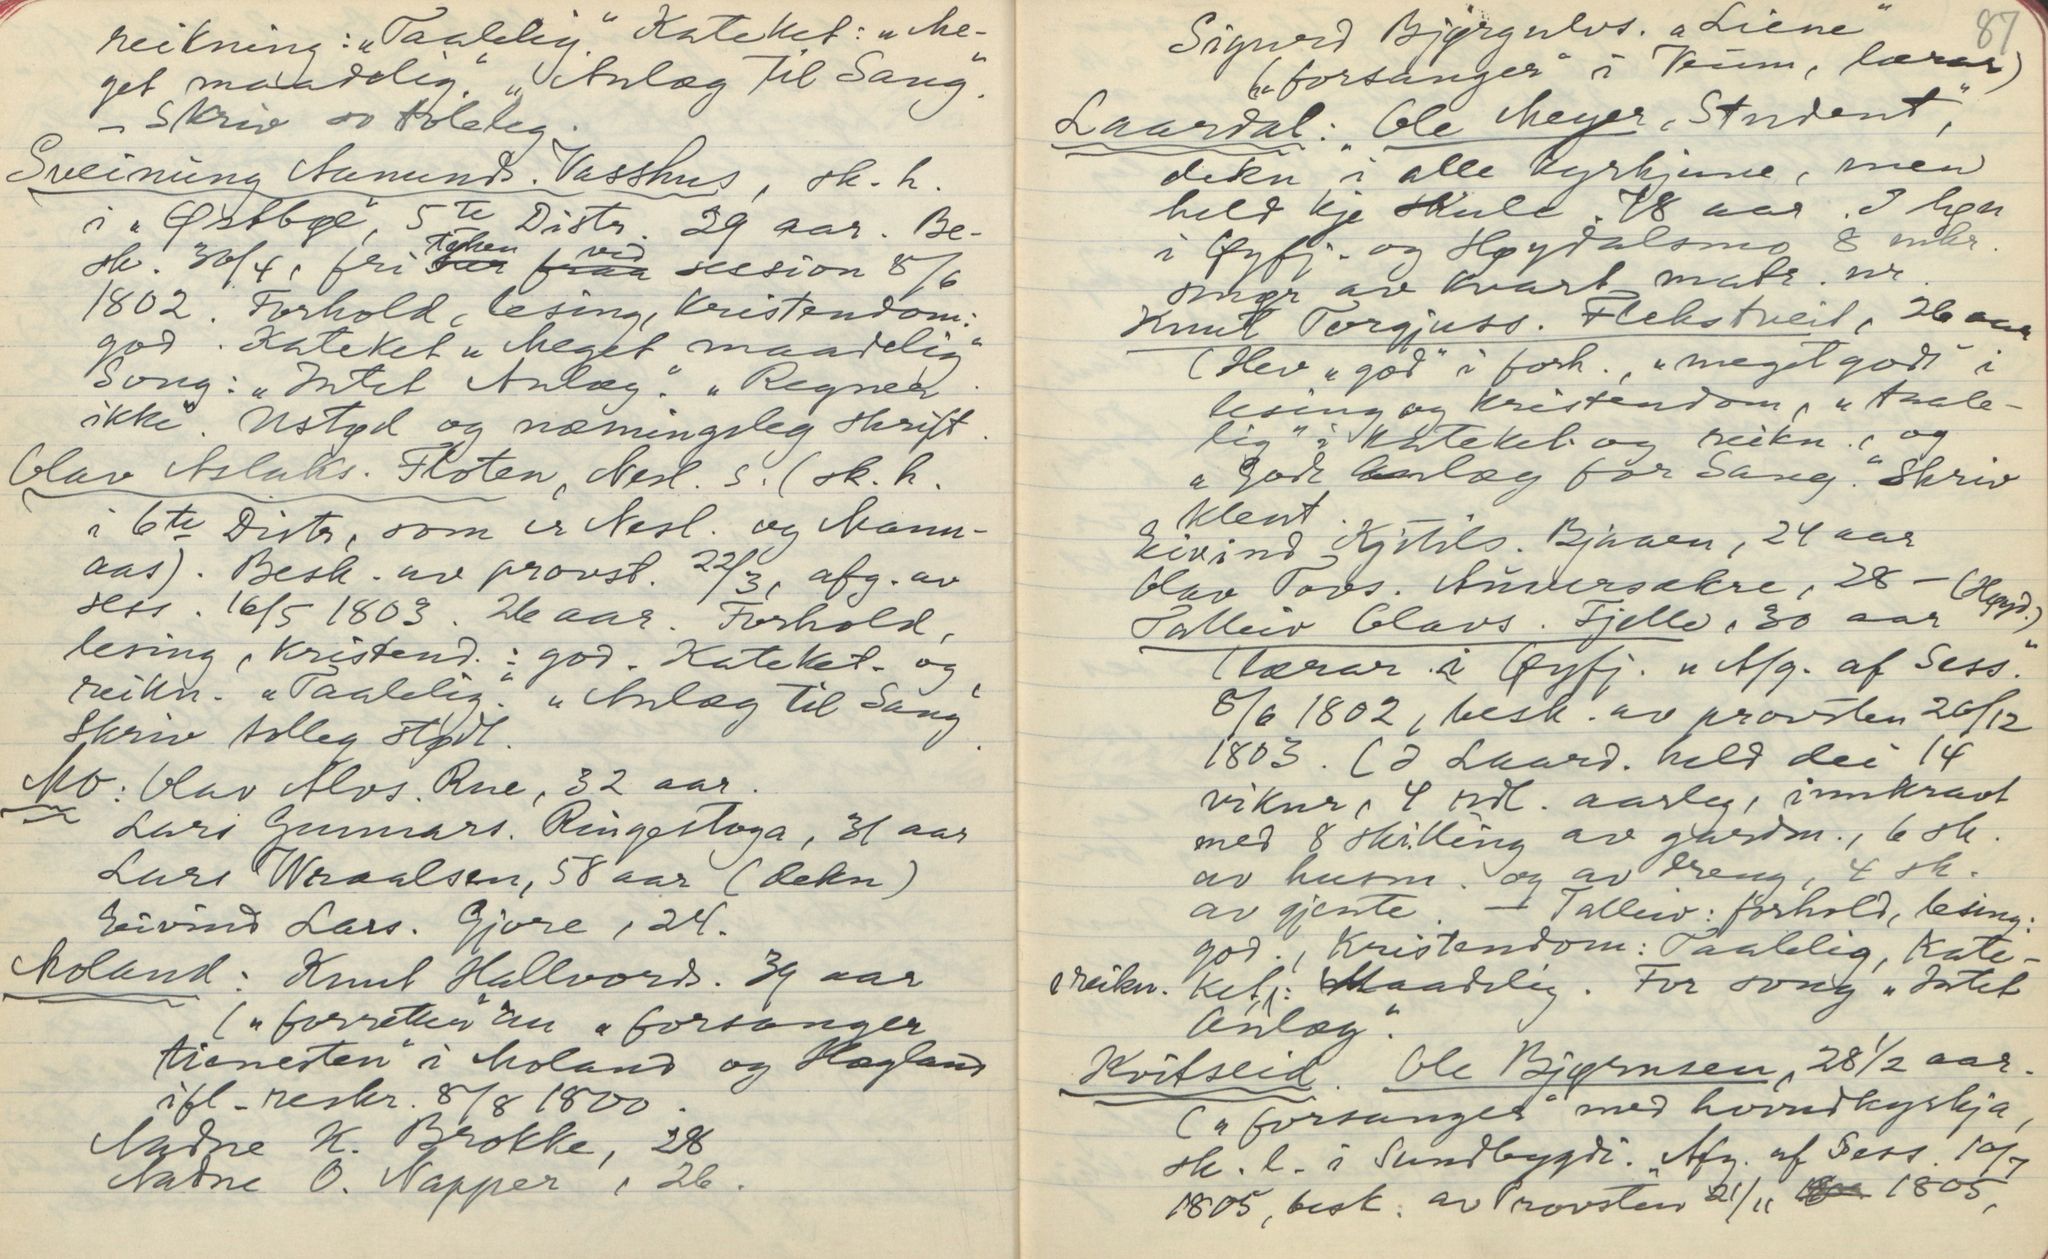 reikning: „Taalelig.“ Kateket: „Me-
get maadelig.“ „Anlæg til Sang“.
– Skriv so toleleg.
Sveinung Aanunds. Vasshus, sk. h.
i „Østbøe“, 5te Distr. 29 aar. Be-
sk. 30/4, fri teken ved sesion 8/6
1802. Forhold, lesing, kristendom:
god. Kateket „Meget maadelig“
Song: „Intet Anlæg“. „Regner
ikke“. Ustød og næmingsleg skrift.
Olav Aslaks. Floten, Nesl. s. (sk. h.
i 6te Distr, som er Nesl. og Mann-
aas). Besk. av provst. 22/3, afg. av
sess. 16/5 1803. 26 aar. Forhold,
lesing, kristend.: god. Kateket- og
reikn. „Taalelig“. „Anlæg til Sang“.
Skriv tolleg stødt.
Mo: Olav Alvs. Rue, 32 aar.
Lars Gunnars. Ringestoga, 31 aar
Lars Wraalsen, 58 aar (dekn)
Eivind Lars. Gjore, 24.
Moland: Knut Hallvords. 39 aar
(„forretter“ „forsanger
tienesten“ i Moland og Hægland
ifl. reskr. 8/8 1800.
Aadne K. Brokke, 28
Aadne O. Napper, 26.
87
Sigurd Bjørgulvs. „Liene“
(„forsanger“ i Veum, lærar)
Laardal: Ole Meyer, „Student“,
dekn i alle kyrkjune, men
held kje skule. 78 aar. I løn
i Øyfj. og Høydalsmo 8 mkr.
smør av kvart matr. nr.
Knut Torgjuss. Flekstveit, 26 aar
(Hev „god“ i forh., „meget godt“ i
lesing og kristendom, „taale-
lig“ i kateket. og reikn., og
„Godt Anlæg for Sang“. Skriv
klent.
Eivind Kjetils. Bjaaen, 24 aar
Olav Tovs. Anversakre, 28 – (Høyd.)
Talleiv Olavs. Fjelle, 30 aar
(lærar i Øyfj. „Afg. af Sess.“
8/6 1802, besk. av provsten 20/12
1803. (I Laard. held dei 14
vikur, 4 rdl. aarleg, innkravt
med 8 skilling av gardm., 6 sk.
av husm. og av dreng, 4 sk.
av gjente. – Talleiv: forhold, lesing:
god., Kristendom: Taalelig, Kate-
ket, reikn.: Maadelig. For song „Intet
Anlæg“.
Kvitseid. Ole Bjørnsen, 28 1/2 aar.
(„forsanger“ med hovudkyrkja,
sk. l. i Sundbygdi. „Afg. af Sess. 10/7
1805, besk. av Provsten 21/11 1805,